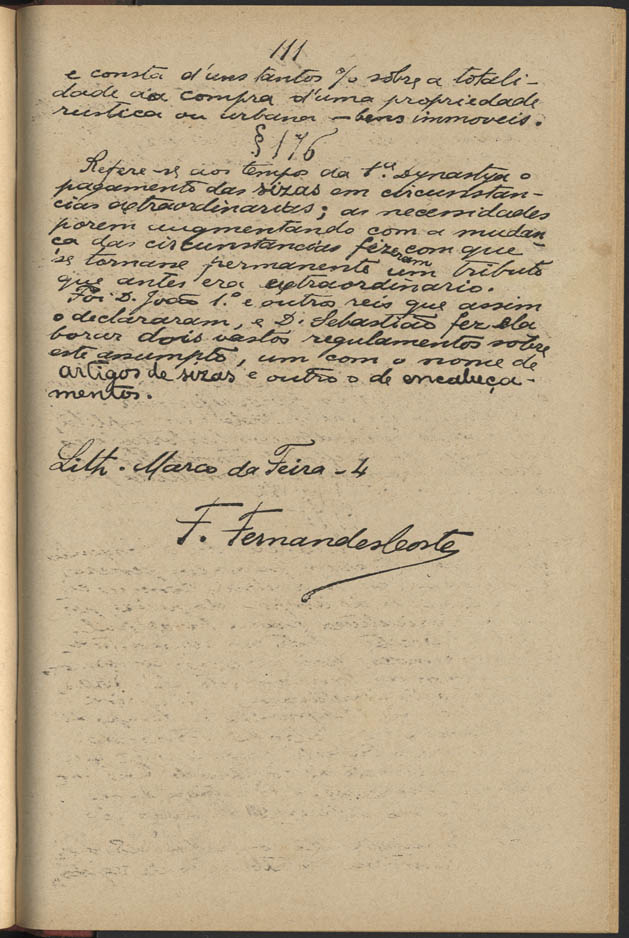 111
e consta d'uns tantos % sobre a totali-
dade da compra d'uma propriedade
rustica ou urbana - bens immoveis.
§ 176
Refere-se aos tempos da 1ª Dynastya o
pagamento das sizas em circunstan-
cias extraordinarias; as necessidades
porem augmentando com a mudan-
ça das circunstancias fizeram com que
se tornasse permanente um tributo
que antes era extraordinario.
Foi D. João 1.º e outros reis que assim
o declararam, e D. Sebastião fez ela
borar dois vastos regulamentos sobre
este assumpto, um com o nome de
artigos de sizas e outro o de encabeça-
mentos.
Lith. Marco da Feira - 4
F. Fernandes Costa